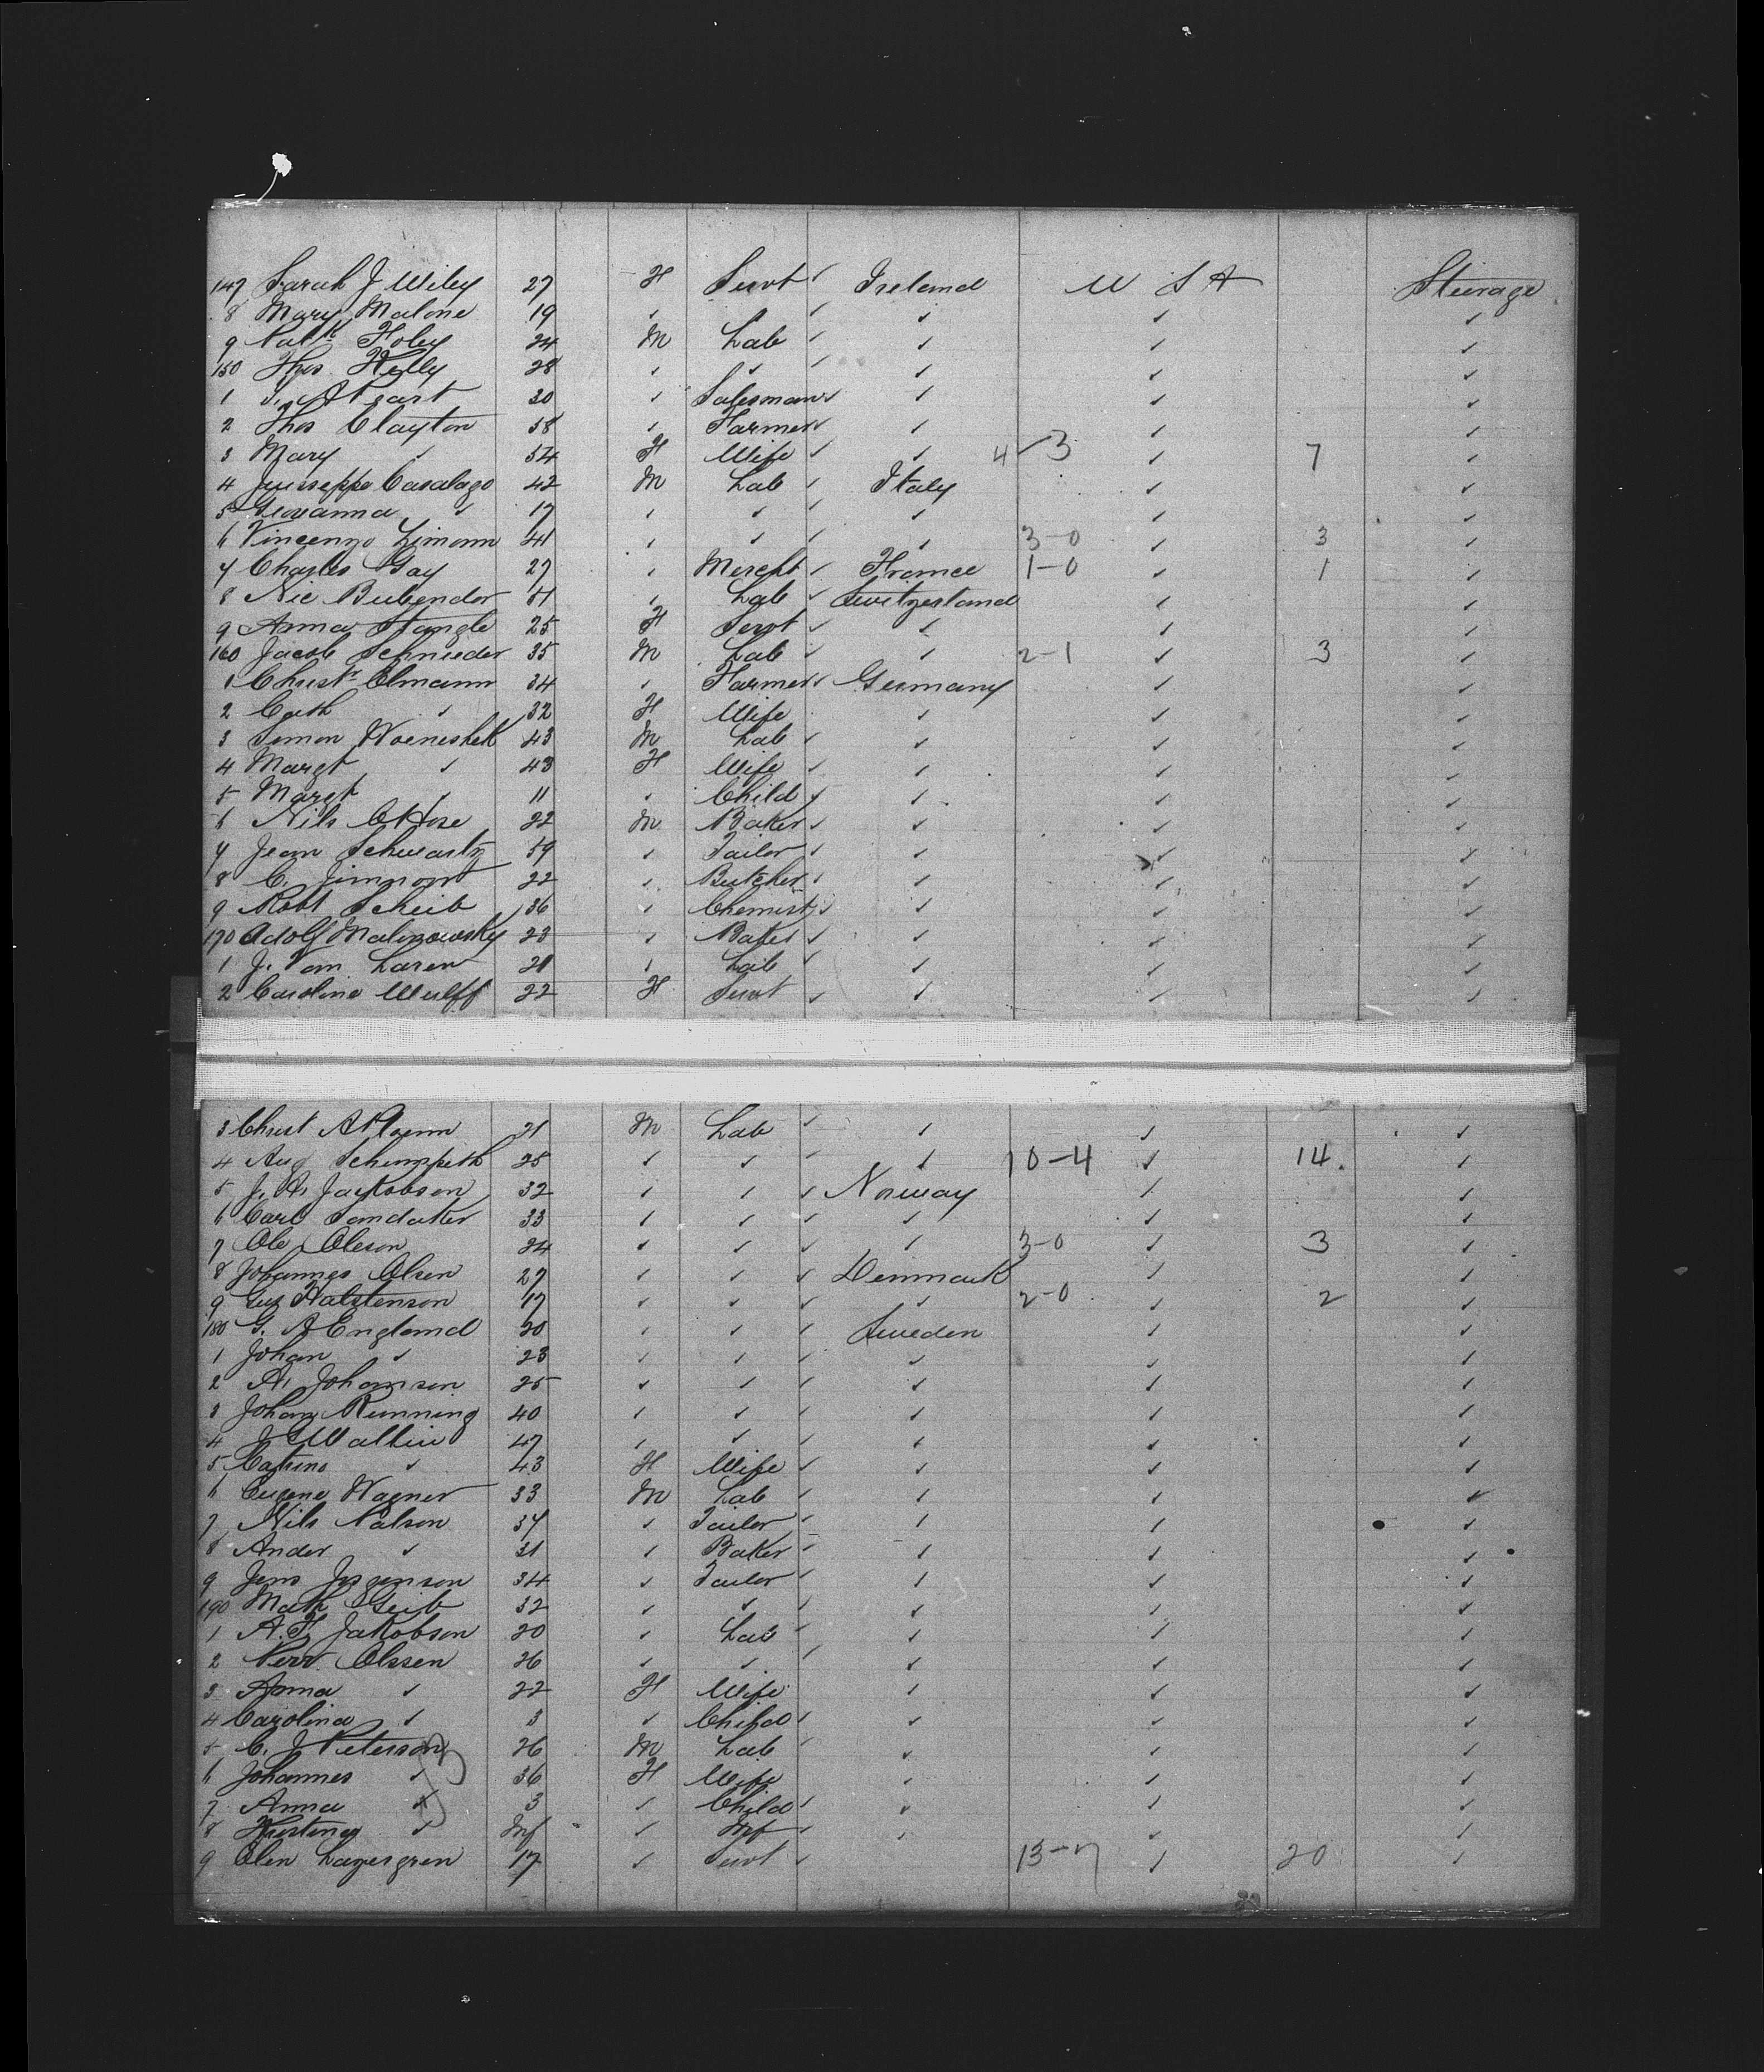 147 Sarah J Wiley 27 F Servt ✓ Ireland U S A Steerage
8 Mary Malone 19 ✓ ✓ ✓ ✓ ✓
9 Patk Foley 24 M Lab ✓ ✓ ✓ ✓
150 Thos Kelly 28 ✓ ✓ ✓ ✓ ✓ ✓
1 30 ✓ Salesman ✓ ✓ ✓ ✓
2 Thos Clayton 38 ✓ Farmer ✓ ✓ ✓ ✓
3 Mary ✓ 34 F Wife ✓ ✓ 4-3 ✓ 7 ✓
4 Casalago 42 M Lab ✓ Italy ✓ ✓
5 Giovanna ✓ 17 ✓ ✓ ✓ ✓ ✓ ✓
6 Vincenzo Limonn 41 ✓ ✓ ✓ ✓ 3-0 ✓ 3 ✓
7 Charles Gay 27 ✓ Mercht ✓ France 1-0 ✓ 1 ✓
8 Nic 51 ✓ Lab ✓ Switzerland ✓ ✓
9 Anna Stangle 25 F Servt ✓ ✓ ✓ ✓
160 Jacob Schnieder 35 M Lab ✓ ✓ 2-1 ✓ 3 ✓
1 Christn Elmann 34 ✓ Farmer ✓ Germany ✓ ✓
2 Cath ✓ 32 F Wife ✓ ✓ ✓
3 Simon 43 M Lab ✓ ✓ ✓ ✓
4 Margt ✓ 43 F Wife ✓ ✓ ✓ ✓
5 Margt ✓ 11 ✓ Child ✓ ✓ ✓ ✓
6 Nils 22 M Baker ✓ ✓ ✓ ✓
7 Jean Schwartz 59 ✓ Tailor ✓ ✓ ✓ ✓
8 C. 22 ✓ Butcher ✓ ✓ ✓ ✓
9 Robt Scheib 36 ✓ Chemist ✓ ✓ ✓ ✓
170 Adolf Malinowsky 23 ✓ Baker ✓ ✓ ✓ ✓
1 J. Van Laren 21 ✓ Lab ✓ ✓ ✓ ✓
2 Caroline Wulff 22 F Servt ✓ ✓ ✓ ✓
3 Christ 21 M Lab ✓ ✓ ✓ ✓
4 Aug 25 ✓ ✓ ✓ ✓ 10-4 ✓ 14. ✓
5 J. A. Jackobson 32 ✓ ✓ ✓ Norway ✓ ✓
6 Carl Sandaker 33 ✓ ✓ ✓ ✓ ✓ ✓
7 Ole Oleson 24 ✓ ✓ ✓ ✓ 3-0 ✓ 3 ✓
8 Johannes Olsen 27 ✓ ✓ ✓ Denmark ✓ ✓
9 Gus Halstenson 17 ✓ ✓ ✓ ✓ 2-0 ✓ 2 ✓
180 G. A England 20 ✓ ✓ ✓ Sweden ✓ ✓
1 Johan ✓ 23 ✓ ✓ ✓ ✓ ✓ ✓
2 A. Johanson 25 ✓ ✓ ✓ ✓ ✓ ✓
3 Johan Running 40 ✓ ✓ ✓ ✓ ✓ ✓
4 J Wallin 47 ✓ ✓ ✓ ✓ ✓ ✓
5 Catrina ✓ 43 F Wife ✓ ✓ ✓ ✓
6 Eugene Wagner 33 M Lab ✓ ✓ ✓ ✓
7 Nils Nalson 37 ✓ Tailor ✓ ✓ ✓ ✓
8 Ander ✓ 31 ✓ Baker ✓ ✓ ✓ ✓
9 Jens Jorgenson 34 ✓ Tailor ✓ ✓ ✓ ✓
190 Math Geib 32 ✓ ✓ ✓ ✓ ✓ ✓
1 A. F. Jakobson 20 ✓ Lab ✓ ✓ ✓ ✓
2 Olssen 26 ✓ ✓ ✓ ✓ ✓ ✓
3 Anna ✓ 22 F Wife ✓ ✓ ✓
4 Carolina ✓ 3 ✓ Child ✓ ✓ ✓ ✓
5 C. J Peterson 26 M Lab ✓ ✓ ✓ ✓
6 Johannes ✓ 36 F Wife ✓ ✓ ✓
7 Anna ✓ 3 ✓ Child ✓ ✓ ✓ ✓
8 ✓ Inf ✓ Inf ✓ ✓ ✓ ✓
9 Elin Lagergren 17 ✓ Servt ✓ 13-7 ✓ 20 ✓